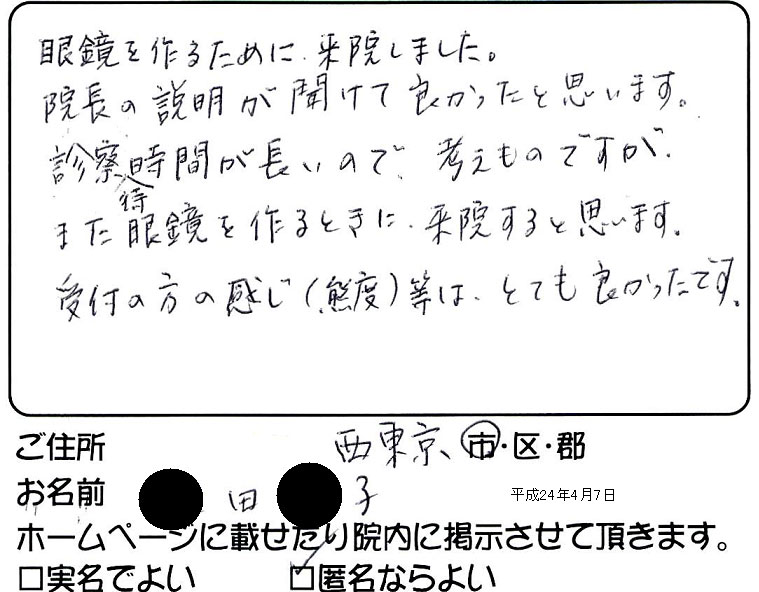 眼鏡を作るために、来院しました。
院長の説明が聞けて良かったと思います。
診察待時間が長いので、考えものですが、
また眼鏡を作るときに、来院すると思います。
受付の方の感じ(態度)等は、とても良かったです。
ご住所 西東京 市・区・郡
お名前 田 子 平成24年4月7日
ホームページに載せたり院内に掲示させて頂きます。
□実名でよい ☑匿名ならよい